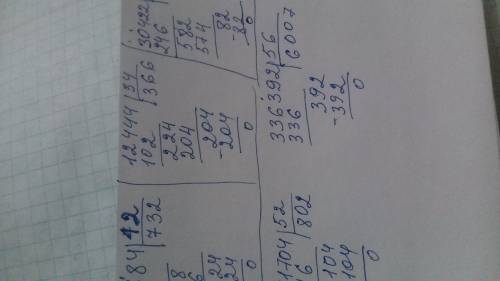 84|42
732
84
84
0
12444|34
102 366
224
204
204
-204
0
30422
246
582
574
82
-82
0
1704|52
16 802
104
104
0
336392|56
336 6007
392
-392
0